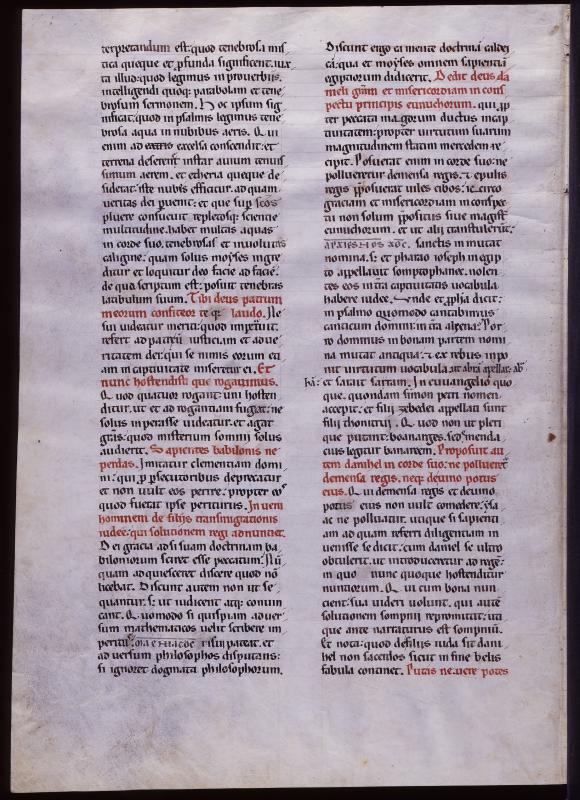 terpretandum est: quod tenebrosa mis
tica queque et ꝓfunda significent. iux
ta illud: quod legimus in prouerbiis.
intelligendi quoq; parabolam et tene
brosum sermonem. Hoc ipsum sig
nificat: quod in psalmis legimus tene
brosa aqua in nubibus aeris. Qui
enim ad excelsa conscendit: et
terrena deserens instar auium tenuis
simum aerem. et etheria queque de
siderat: iste nubes efficitur. ad quam
ueritas dei peruenit: et que sup scos
pluere consueuit repletosq; scientie
multitudine. habet multas aquas
in corde suo. tenebrosas et inuolutas
caligine: quam solus moyses ingre
ditur et loquitur deo facie ad facie.
de quo scriptum est: posuit tenebras
latibulum suum. Tibi deus patrum
meorum confiteor te q; laudo. Ne
sui uideatur meriti: quod impetrat:
refert ad patrum iusticiam et ad ue
ritatem dei: qui se minis eorum eti
am in captiuitate miseretur ei. Et
nunc hostendisti que rogauimus.
Quod quatuor rogant: uni hosten
ditur. ut et adrogantiam fugiat: ne
solus inpetrasse uideatur. et agat
gras: quod misterium somnii solus
audierit. Sapientes babilonis ne
perdas. Imitatur clementiam domi
ni: qui ꝓ ꝑsecutoribus deprecatur
et non uult eos perire: propter eos
quod fuerat ipse periturus. Inueni
hominem de filijs transmigrationis
iudee: qui solutionem regi adnunciet.
Dei gracia ad si suam doctrinam ba
biloniorum sciret esse peccatum: Nu
quam adquiesceret discere quod no
licebat. Discunt autem non ut se
quantur. s; ut iudicent atq; conuin
cant. Quomodo si quispiam aduer
sum mathematicos uelit scribere im
peritus risui pateat. et
ad uersum philosophos disputans:
si ignoret dogmata philosophorum.
Discunt ergo ea mente doctrina caldei
ca: qua et moyses omnem sapientia
egiptiorum didicerit. Dedit deus da
nieli gram et misericordiam in cons
pectu principis eunuchorum. qui ꝓp
ter peccata maiorum ductus in cap
tiuitatem: propter uirtutum suarum
magnitudinem statim mercedem re
cipit. Posuerat enim in corde suo: ne
pollueretur de mensa regis. et epulis
regis ꝓposuerat uiles cibos: idcirco
graciam et misericordiam in conspec
tu non solum ꝓpositus siue magistri
eunuchorum. et ut alii transtulerunt:
sanctis inmutat
nomina. s; et pharao ioseph in egip
to appellauit somptophanec. nolen
tes eos in terra captiuitatis uocabula
habere iudee. Vnde et ꝓpha dicit:
in psalmo quomodo cantabimus
canticum domini: in tra aliena: Por
ro dominus in bonam partem nomi
na mutat antiqua: et ex rebus inpo
nit uirtutum uocabula ut abra apellat: ab
ha: et sarai: sarram. In euuangelio quo
que. quondam simon petri nomen
accepit: et filij zebedei appellati sunt
filij thonitrui. Quod non ut pleri
que putant: boananges. sed emenda
cius legitur banareem. Proposuit au
tem danihel in corde suo: ne pollueret
de mensa regis. neq; deuino potus
eius. Qui de mensa regis et de uino
potus eius non uult comedere: ysa
ac ne polluatur. utique si sapienti
am ad quam referri diligentiam in
uenisse se dicit: cum daniel se ultro
obtulerit. ut introduceretur ad rege:
in quo nunc quoque hostenditur
nuntiorum. Qui cum bona nun
cient: sua uideri uolunt. qui autem
solutionem sompnij repromittit: uti
que ante narraturus est sompnium.
Et nota: quod de filijs iuda sit dani
hel non sacerdos sicut in fine belis
fabula continet. Putas ne: uere potes